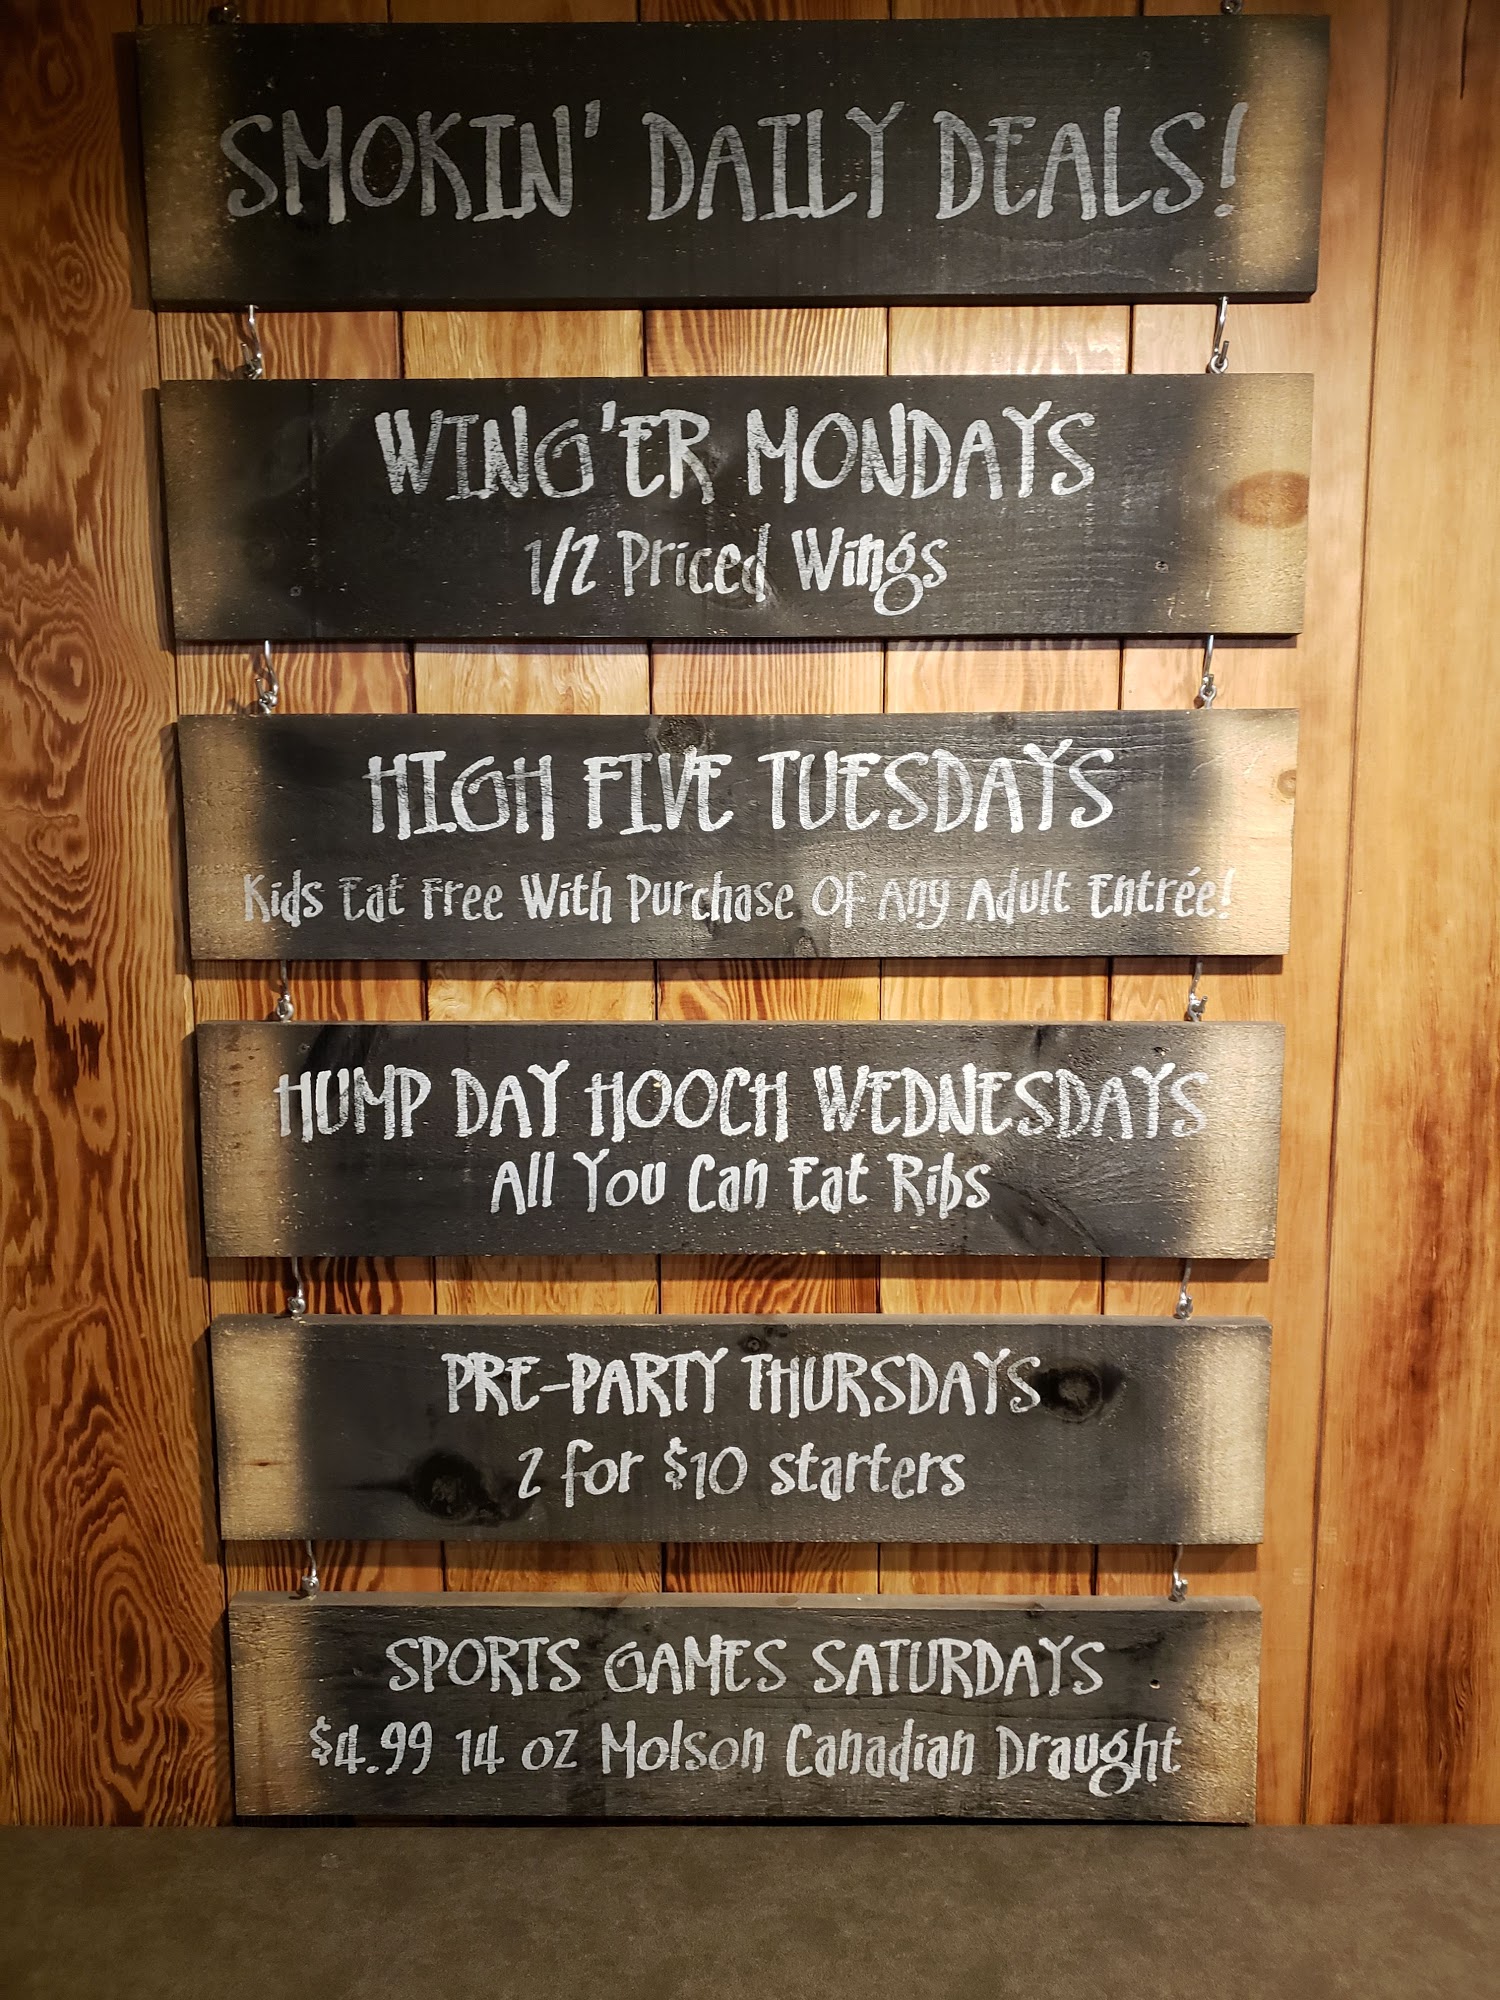 SMOKIN' DAILY DEALS!
WING'ER MONDAYS
1/2 Priced Wings
HIGH FIVE TUESDAYS
Kids Eat Free With Purchase Of Any Adult Entrée!
HUMP DAY HOOCH WEDNESDAYS
All You Can Eat Ribs
PRE-PARTY THURSDAYS
2 for $10 starters
SPORTS GAMES SATURDAYS
$4.99 14 oz Molson Canadian Draught